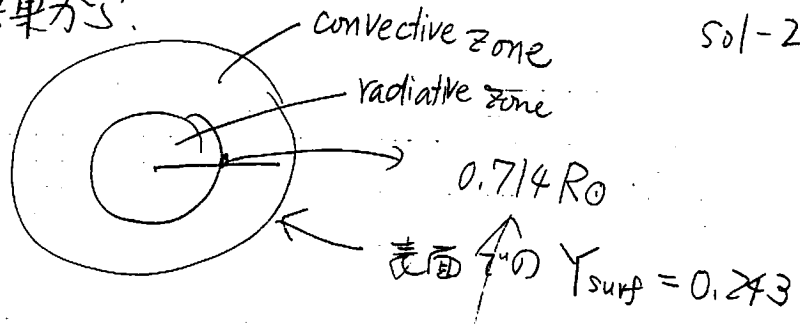 結果から.
convective zone
sol-2
radiative zone
0.714 R⊙
表面での Ysurf = 0.243